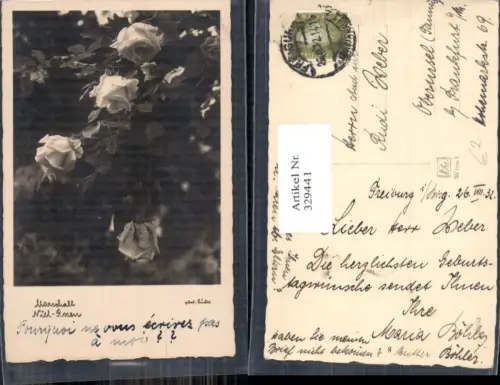 Marschall
Niel-Rosen
Pourquoi ne vous écrivez pas
à moi ? ?
Artikel Nr.
329441
Herrn stud.
Rudi Beber
Oberursel (Taunus)
b/ Frankfurt a/M.
69
62
Wien I
Freiburg i/Brg. 26. VII. 32.
Lieber Herr Beber
Die herzlichsten Geburts-
tagswünsche sendet Ihnen
Ihre
Maria Böhler
Haben Sie meinen
Brief nicht bekommen ? & Mutter Böhler